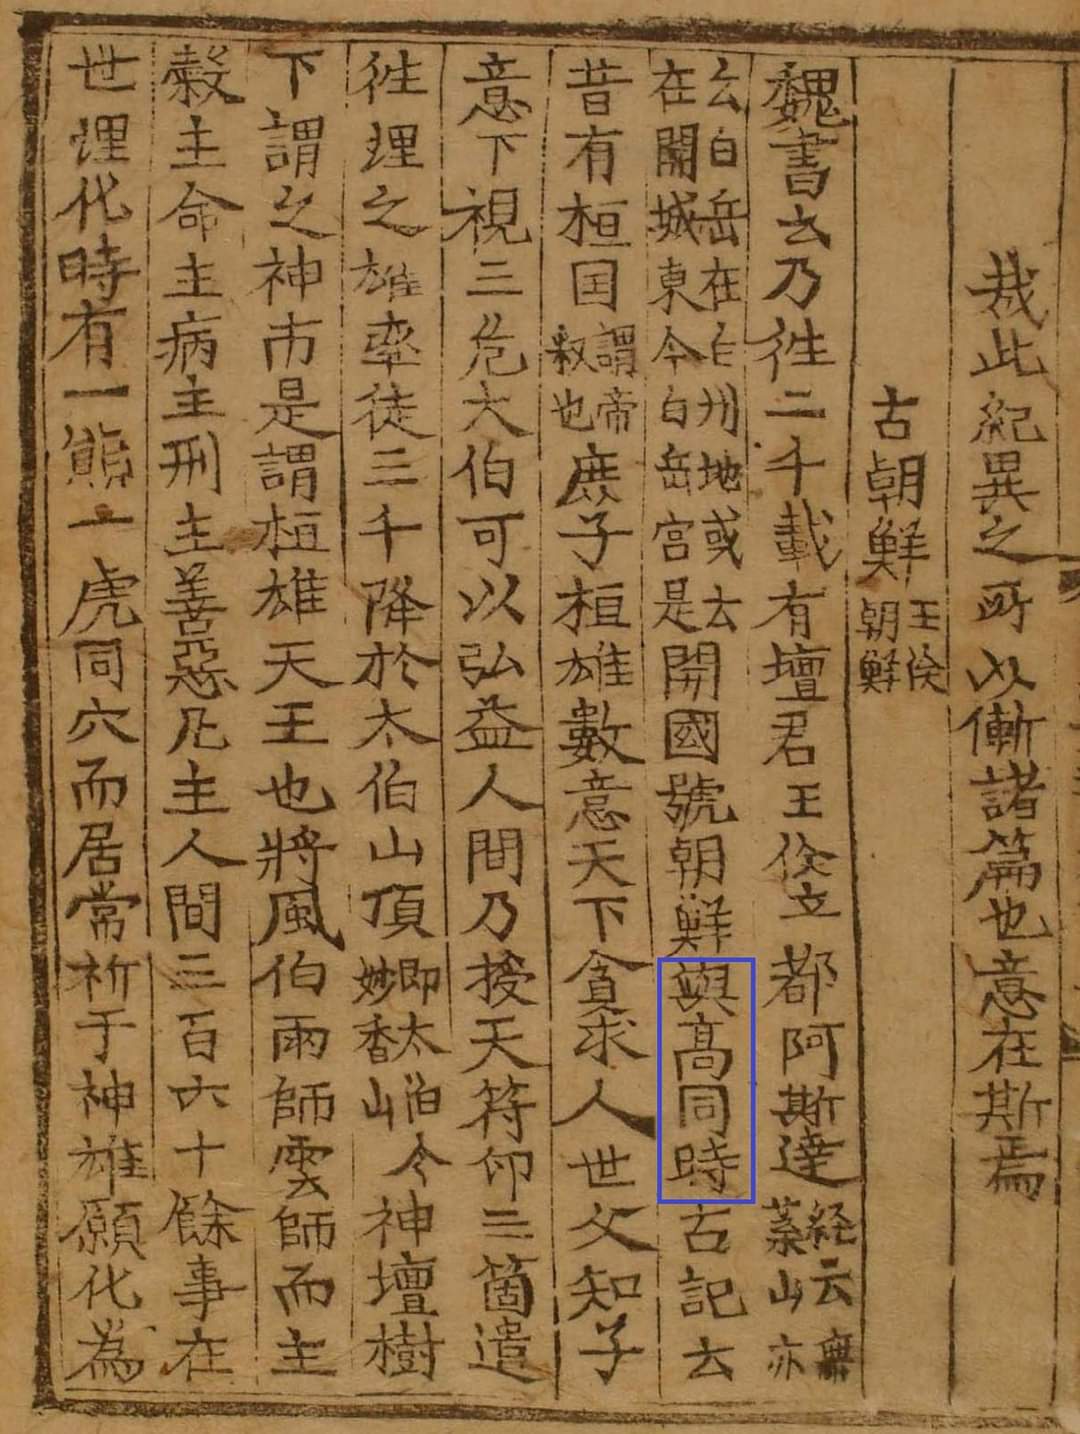 㦲此紀異之所以慚諸篇也意在斯焉
古朝鮮王倹朝鮮
魏書云乃徃二千載有壇君王倹立都阿斯達経云無葉山亦
云白岳在白州地或云在開城東今白岳宮是開國號朝鮮與髙同時古記云
昔有桓囯謂帝釈也庶子桓雄數意天下貪求人世父知子
意下視三危大伯可以弘益人間乃授天符印三箇遣
徃理之雄率徒三千降於太伯山頂即太伯今妙香山神壇樹
下謂之神市是謂桓雄天王也將風伯雨師雲師而主
穀主命主病主刑主善惡凡主人間三百六十餘事在
世理代時有一熊一虎同穴而居常祈于神雄願化為